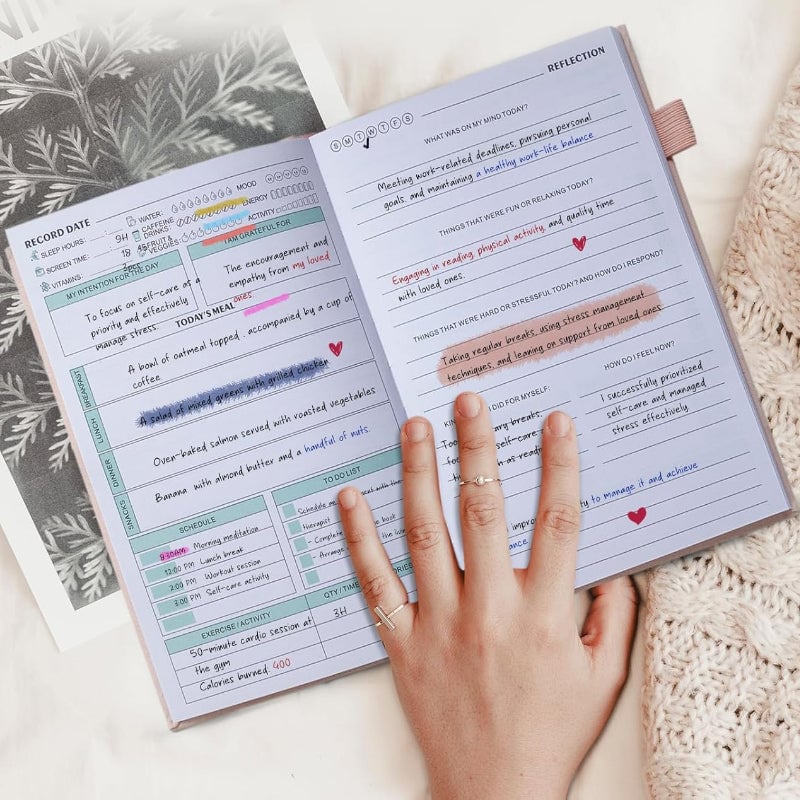 RECORD DATE
SLEEP HOURS: 9H
SCREEN TIME: 18
VITAMINS: 3pcs
WATER:
CAFFEINE DRINKS:
FRUIT & VEGGIES:
MOOD
ENERGY
ACTIVITY
MY INTENTION FOR THE DAY
To focus on self-care as a
priority and effectively
manage stress.
I AM GRATEFUL FOR
The encouragement and
empathy from my loved
ones.
TODAY'S MEAL
BREAKFAST
A bowl of oatmeal topped . accompanied by a cup of
coffee
LUNCH
A salad of mixed greens with grilled chicken
DINNER
Oven-baked salmon served with roasted vegetables
SNACKS
Banana with almond butter and a handful of nuts.
SCHEDULE
9:30AM Morning meditation
12:00 PM Lunch break
2:00 PM Workout session
3:00 PM Self-care activity
TO DO LIST
Schedule with the
- Complete book
- Arrange the
EXERCISE / ACTIVITY
QTY / TIME
50-minute cardio session at
3H
the gym
Calories burned: 400
REFLECTION
S M T W T F S
WHAT WAS ON MY MIND TODAY?
Meeting work-related deadlines, pursuing personal
goals, and maintaining a healthy work-life balance
THINGS THAT WERE FUN OR RELAXING TODAY?
Engaging in reading, physical activity, and quality time
with loved ones.
THINGS THAT WERE HARD OR STRESSFUL TODAY? AND HOW DO I RESPOND?
Taking regular breaks, using stress management
techniques, and leaning on support from loved ones
I DID FOR MYSELF:
breaks,
self-care
as
HOW DO I FEEL NOW?
I successfully prioritized
self-care and managed
stress effectively.
to manage it and achieve